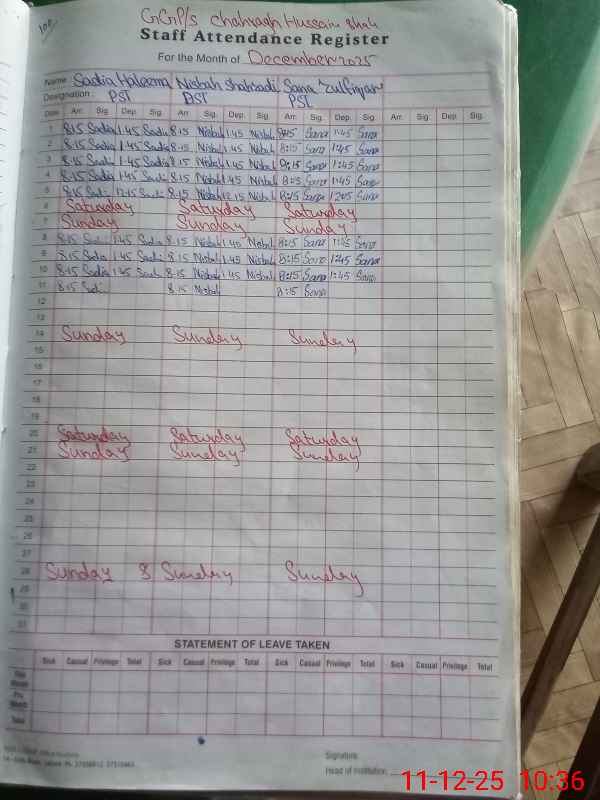 100
GGP/s chahragh Hussain shah
Staff Attendance Register
For the Month of December 2025
Name Sadia Haleema Nisbah Shahzadi Sana Zulfiqar
Designation: PST PST PST
Date Arr. Sig. Dep. Sig. Arr. Sig. Dep. Sig. Arr. Sig. Dep. Sig. Arr. Sig. Dep. Sig.
1 8:15 Sadia 1:45 Sadia 8:15 Nisbah 1:45 Nisbah 8:15 Sana 1:45 Sana
2 8:15 Sadia 1:45 Sadia 8:15 Nisbah 1:45 Nisbah 8:15 Sana 1:45 Sana
3 8:15 Sadia 1:45 Sadia 8:15 Nisbah 1:45 Nisbah 8:15 Sana 1:45 Sana
4 8:15 Sadia 1:45 Sadi 8:15 Nisbah 1:45 Nisbah 8:15 Sana 1:45 Sana
5 8:15 Sadi 12:15 Sadi 8:15 Nisbah 12:15 Nisbah 8:15 Sana 12:05 Sana
6 Saturday Saturday Saturday
7 Sunday Sunday Sunday
8 8:15 Sadi 1:45 Sadia 8:15 Nisbah 1:45 Nisbah 8:15 Sana 1:45 Sana
9 8:15 Sadia 1:45 Sadi 8:15 Nisbah 1:45 Nisbah 8:15 Sana 1:45 Sana
10 8:15 Sadia 1:45 Sadi 8:15 Nisbah 1:45 Nisbah 8:15 Sana 1:45 Sana
11 8:15 Sadi 8:15 Nisbah 8:15 Sana
12
13
14 Sunday Sunday Sunday
15
16
17
18
19
20 Saturday Saturday Saturday
21 Sunday Sunday Sunday
22
23
24
25
26
27
28 Sunday Sunday Sunday
29
30
31
STATEMENT OF LEAVE TAKEN
Sick Casual Privilege Total Sick Casual Privilege Total Sick Casual Privilege Total Sick Casual Privilege Total
Month
Month
Total
Signature
Head of Institution
11-12-25 10:36